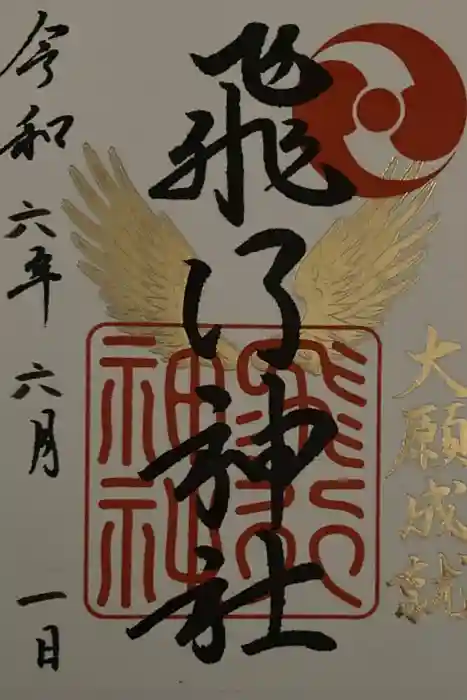 大願成就
飛行神社
飛行
神社
令和六年六月一日